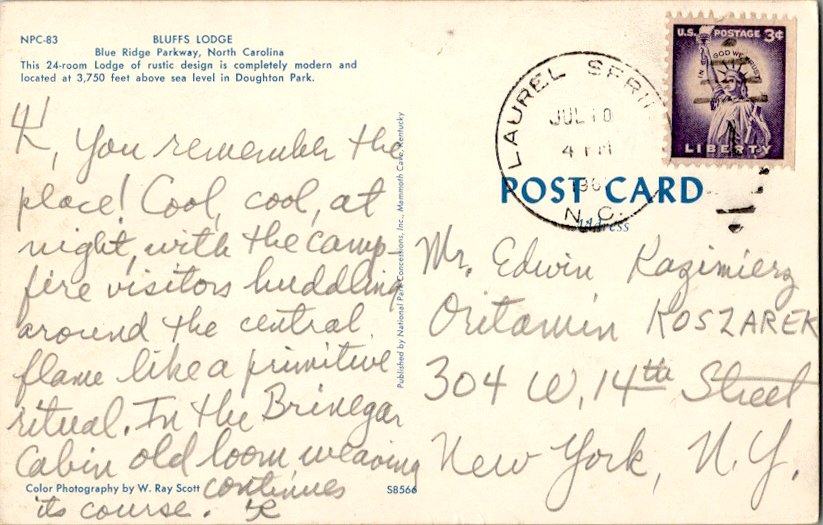 NPC-83
BLUFFS LODGE
Blue Ridge Parkway, North Carolina
This 24-room Lodge of rustic design is completely modern and
located at 3,750 feet above sea level in Doughton Park.
K, You remember the
place! Cool, cool, at
night, with the camp-
fire visitors huddling
around the central
flame like a primitive
ritual. In the Brinegar
Cabin old loom weaving
continues
its course.
Color Photography by W. Ray Scott
S8566
Published by National Park Concessions, Inc., Mammoth Cave, Kentucky
LAUREL SPRIN
JUL 10
4 PM
196
N.C.
U.S. POSTAGE 3¢
IN GOD WE TRUST
LIBERTY
POST CARD
Address
Mr. Edwin Kazimierz
Oritamin KOSZAREK
304 W. 14th Street
New York, N.Y.